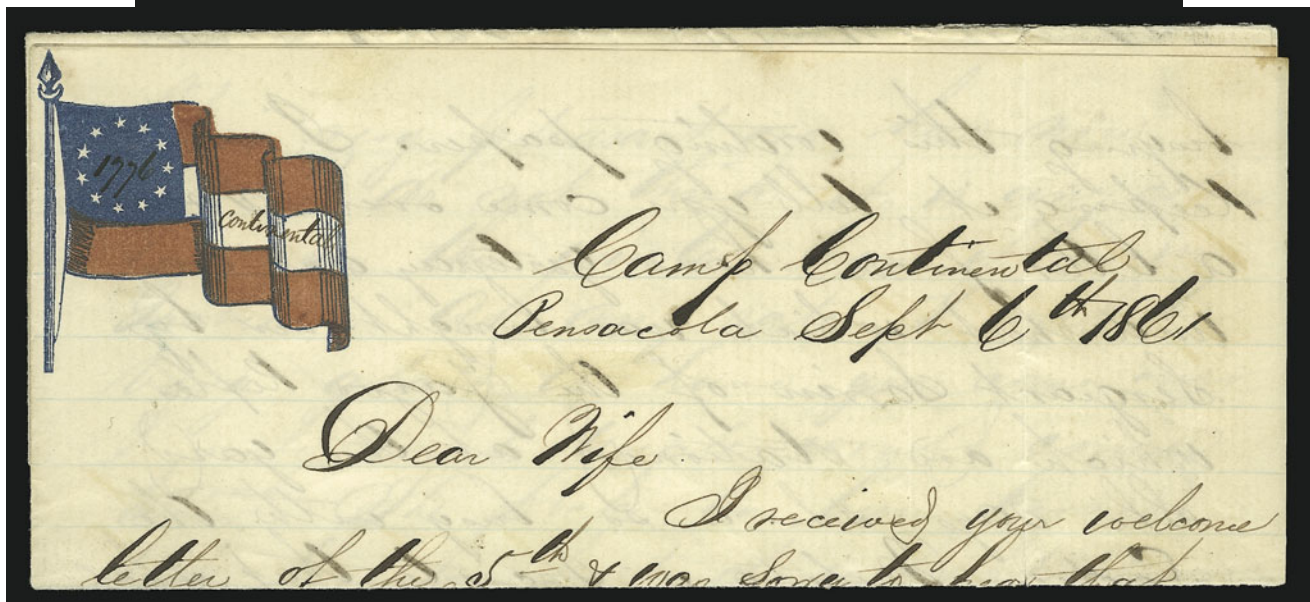 1776
Continental
Camp Continental
Pensacola Sept 6th 1861
Dear Wife
I received your welcome
letter of the 5th & was sorry to hear that